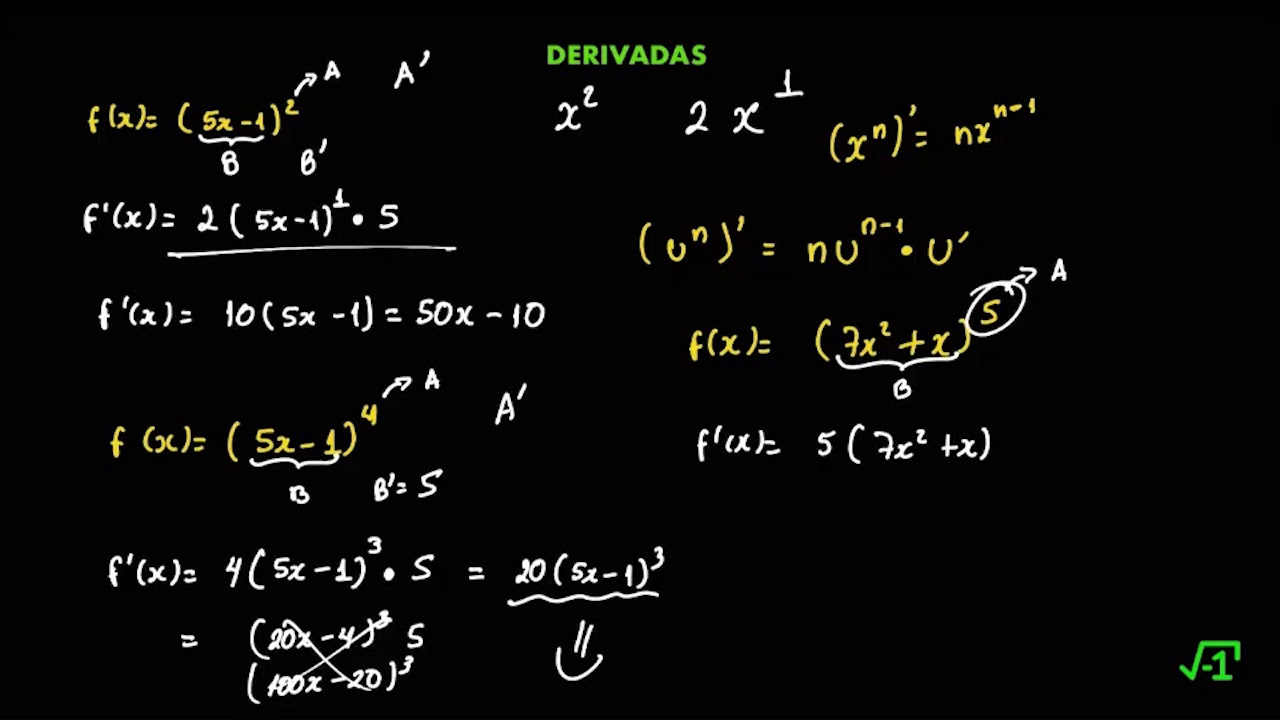 DERIVADAS
f(x)= (5x-1)² → A A'
B B'
f'(x)= 2(5x-1)¹ • 5
f'(x)= 10(5x-1) = 50x-10
f(x)= (5x-1)⁴ → A A'
B B'= 5
f'(x)= 4(5x-1)³ • 5 = 20(5x-1)³
= (20x-4)³ 5
(100x-20)³
x² 2x¹
(xⁿ)' = nxⁿ⁻¹
(uⁿ)' = nuⁿ⁻¹ • u'
f(x)= (7x²+x)⁵ → A
B
f'(x)= 5(7x²+x)
√-1